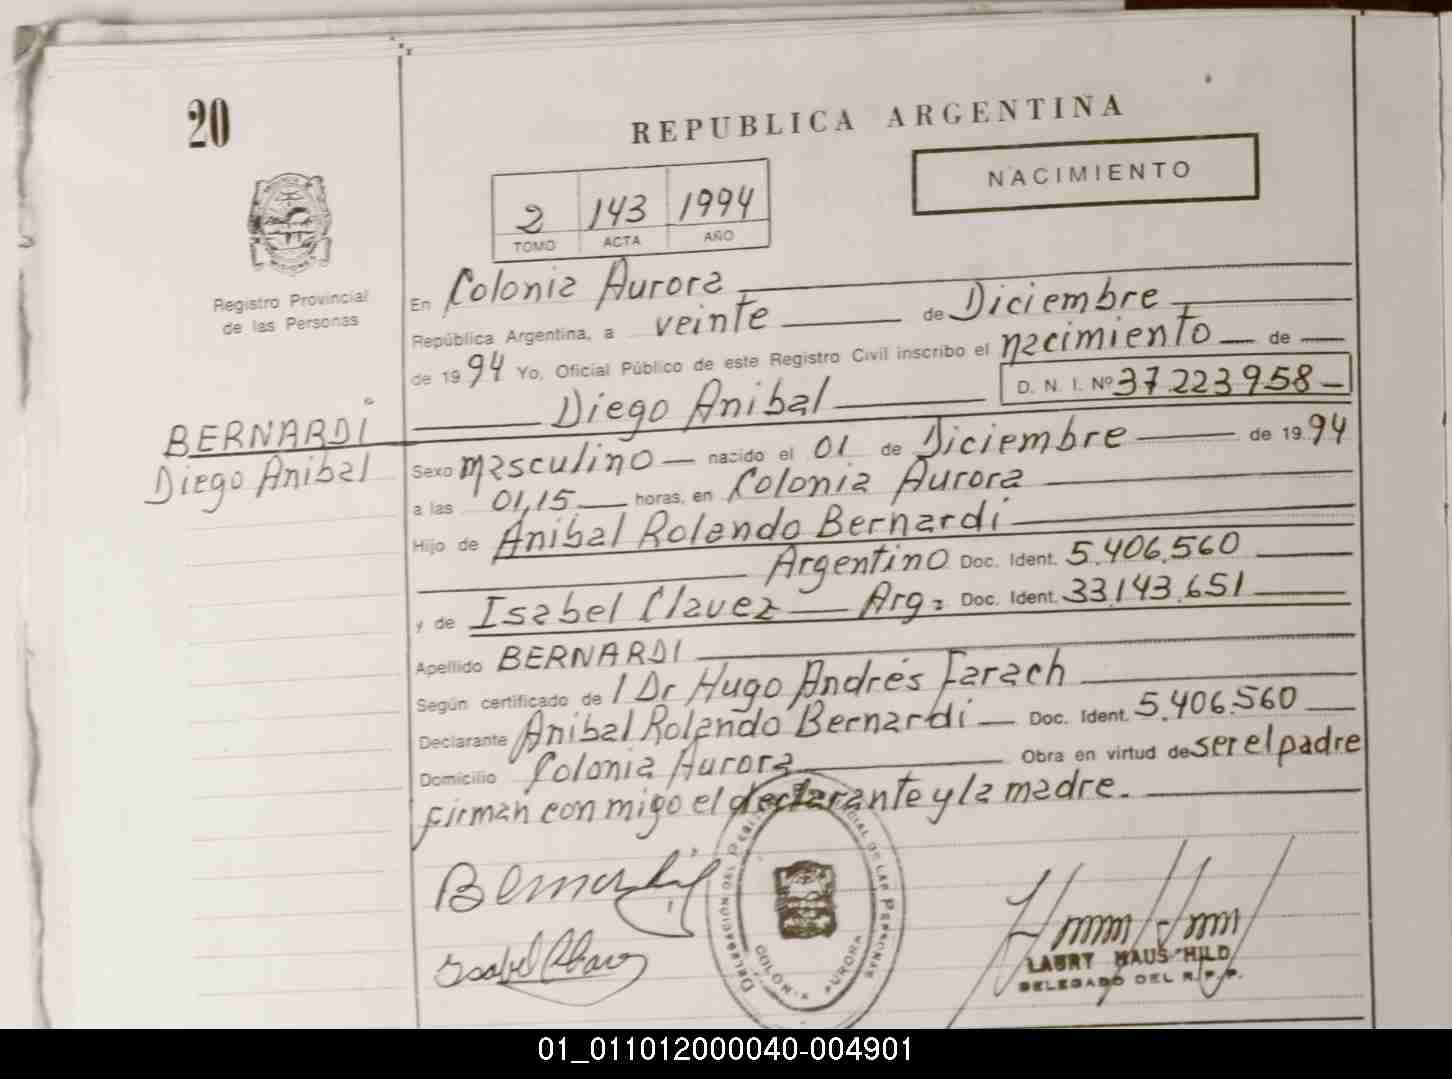 20
REPUBLICA ARGENTINA
NACIMIENTO
2 143 1994
TOMO ACTA AÑO
Registro Provincial
de las Personas
En Colonia Aurora
República Argentina, a veinte de Diciembre
de 1994 Yo, Oficial Público de este Registro Civil inscribo el nacimiento de
D. N. I. Nº 37223958
Diego Anibal
BERNARDI
Diego Anibal
Sexo masculino nacido el 01 de Diciembre de 1994
a las 01,15 horas, en Colonia Aurora
Hijo de Anibal Rolando Bernardi
Argentino Doc. Ident. 5.406.560
y de Isabel Clavez Arg. Doc. Ident. 33.143.651
Apellido BERNARDI
Según certificado de / Dr Hugo Andrés Farach
Declarante Anibal Rolando Bernardi Doc. Ident. 5.406.560
Domicilio Colonia Aurora Obra en virtud de ser el padre
firman con migo el declarante y la madre.
Bernardi
Isabel Clavez
DELEGACION DEL REGISTRO PROVINCIAL DE LAS PERSONAS
COLONIA AURORA
DELEGADO DEL R.P.P.
01_011012000040-004901